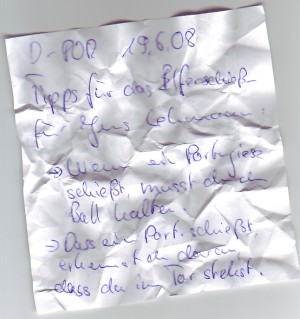 D-POR 19.6.08
Tipps für das Elferschieß-
für Jens Lehmann:
→ Wenn ein Portugiese
schießt, musst du den
Ball halten.
→ Dass ein Port. schießt,
erkennst du daran,
dass du im Tor stehst.